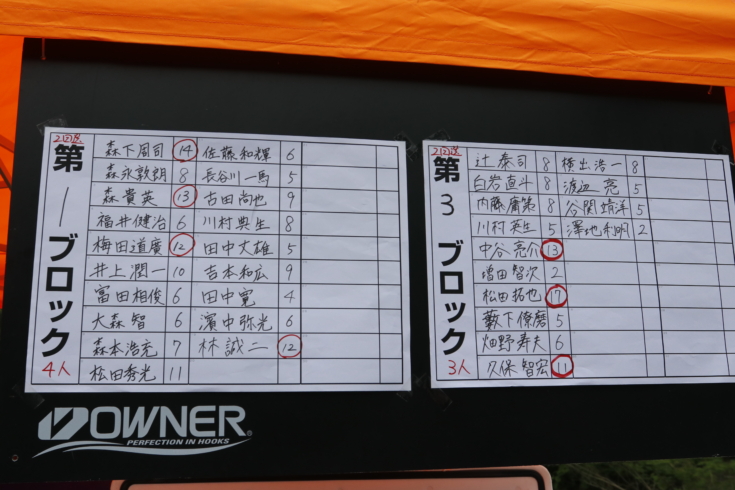 2回戦
第1ブロック
4人
森下周司 14 佐藤和輝 6
森永敦朗 8 長谷川一馬 5
森貴英 13 古田尚也 9
福井健治 6 川村典生 8
梅田道廣 12 田中丈雄 5
井上潤一 10 吉本和広 9
富田相俊 6 田中寛 4
大森智 6 濱中弥光 6
森本浩充 7 林誠二 12
松田秀光 11
2回戦
第3ブロック
3人
辻泰司 8 横出浩一 8
白岩直斗 8 渡辺亮 5
内藤廣第 8 谷関靖洋 5
川村英生 5 澤地利明 2
中谷亮介 13
増田智次 2
松田拓也 17
藪下僚磨 5
畑野寿夫 6
久保智宏 11
OWNER
PERFECTION IN HOOKS